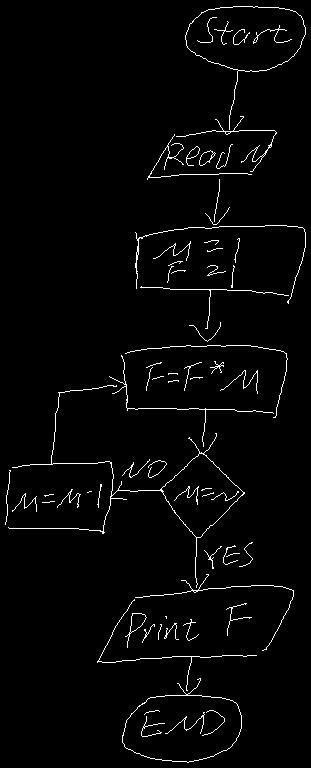 Start
Read N
M = 1
F = 1
F = F * M
NO
M = M - 1
M = N
YES
Print F
END